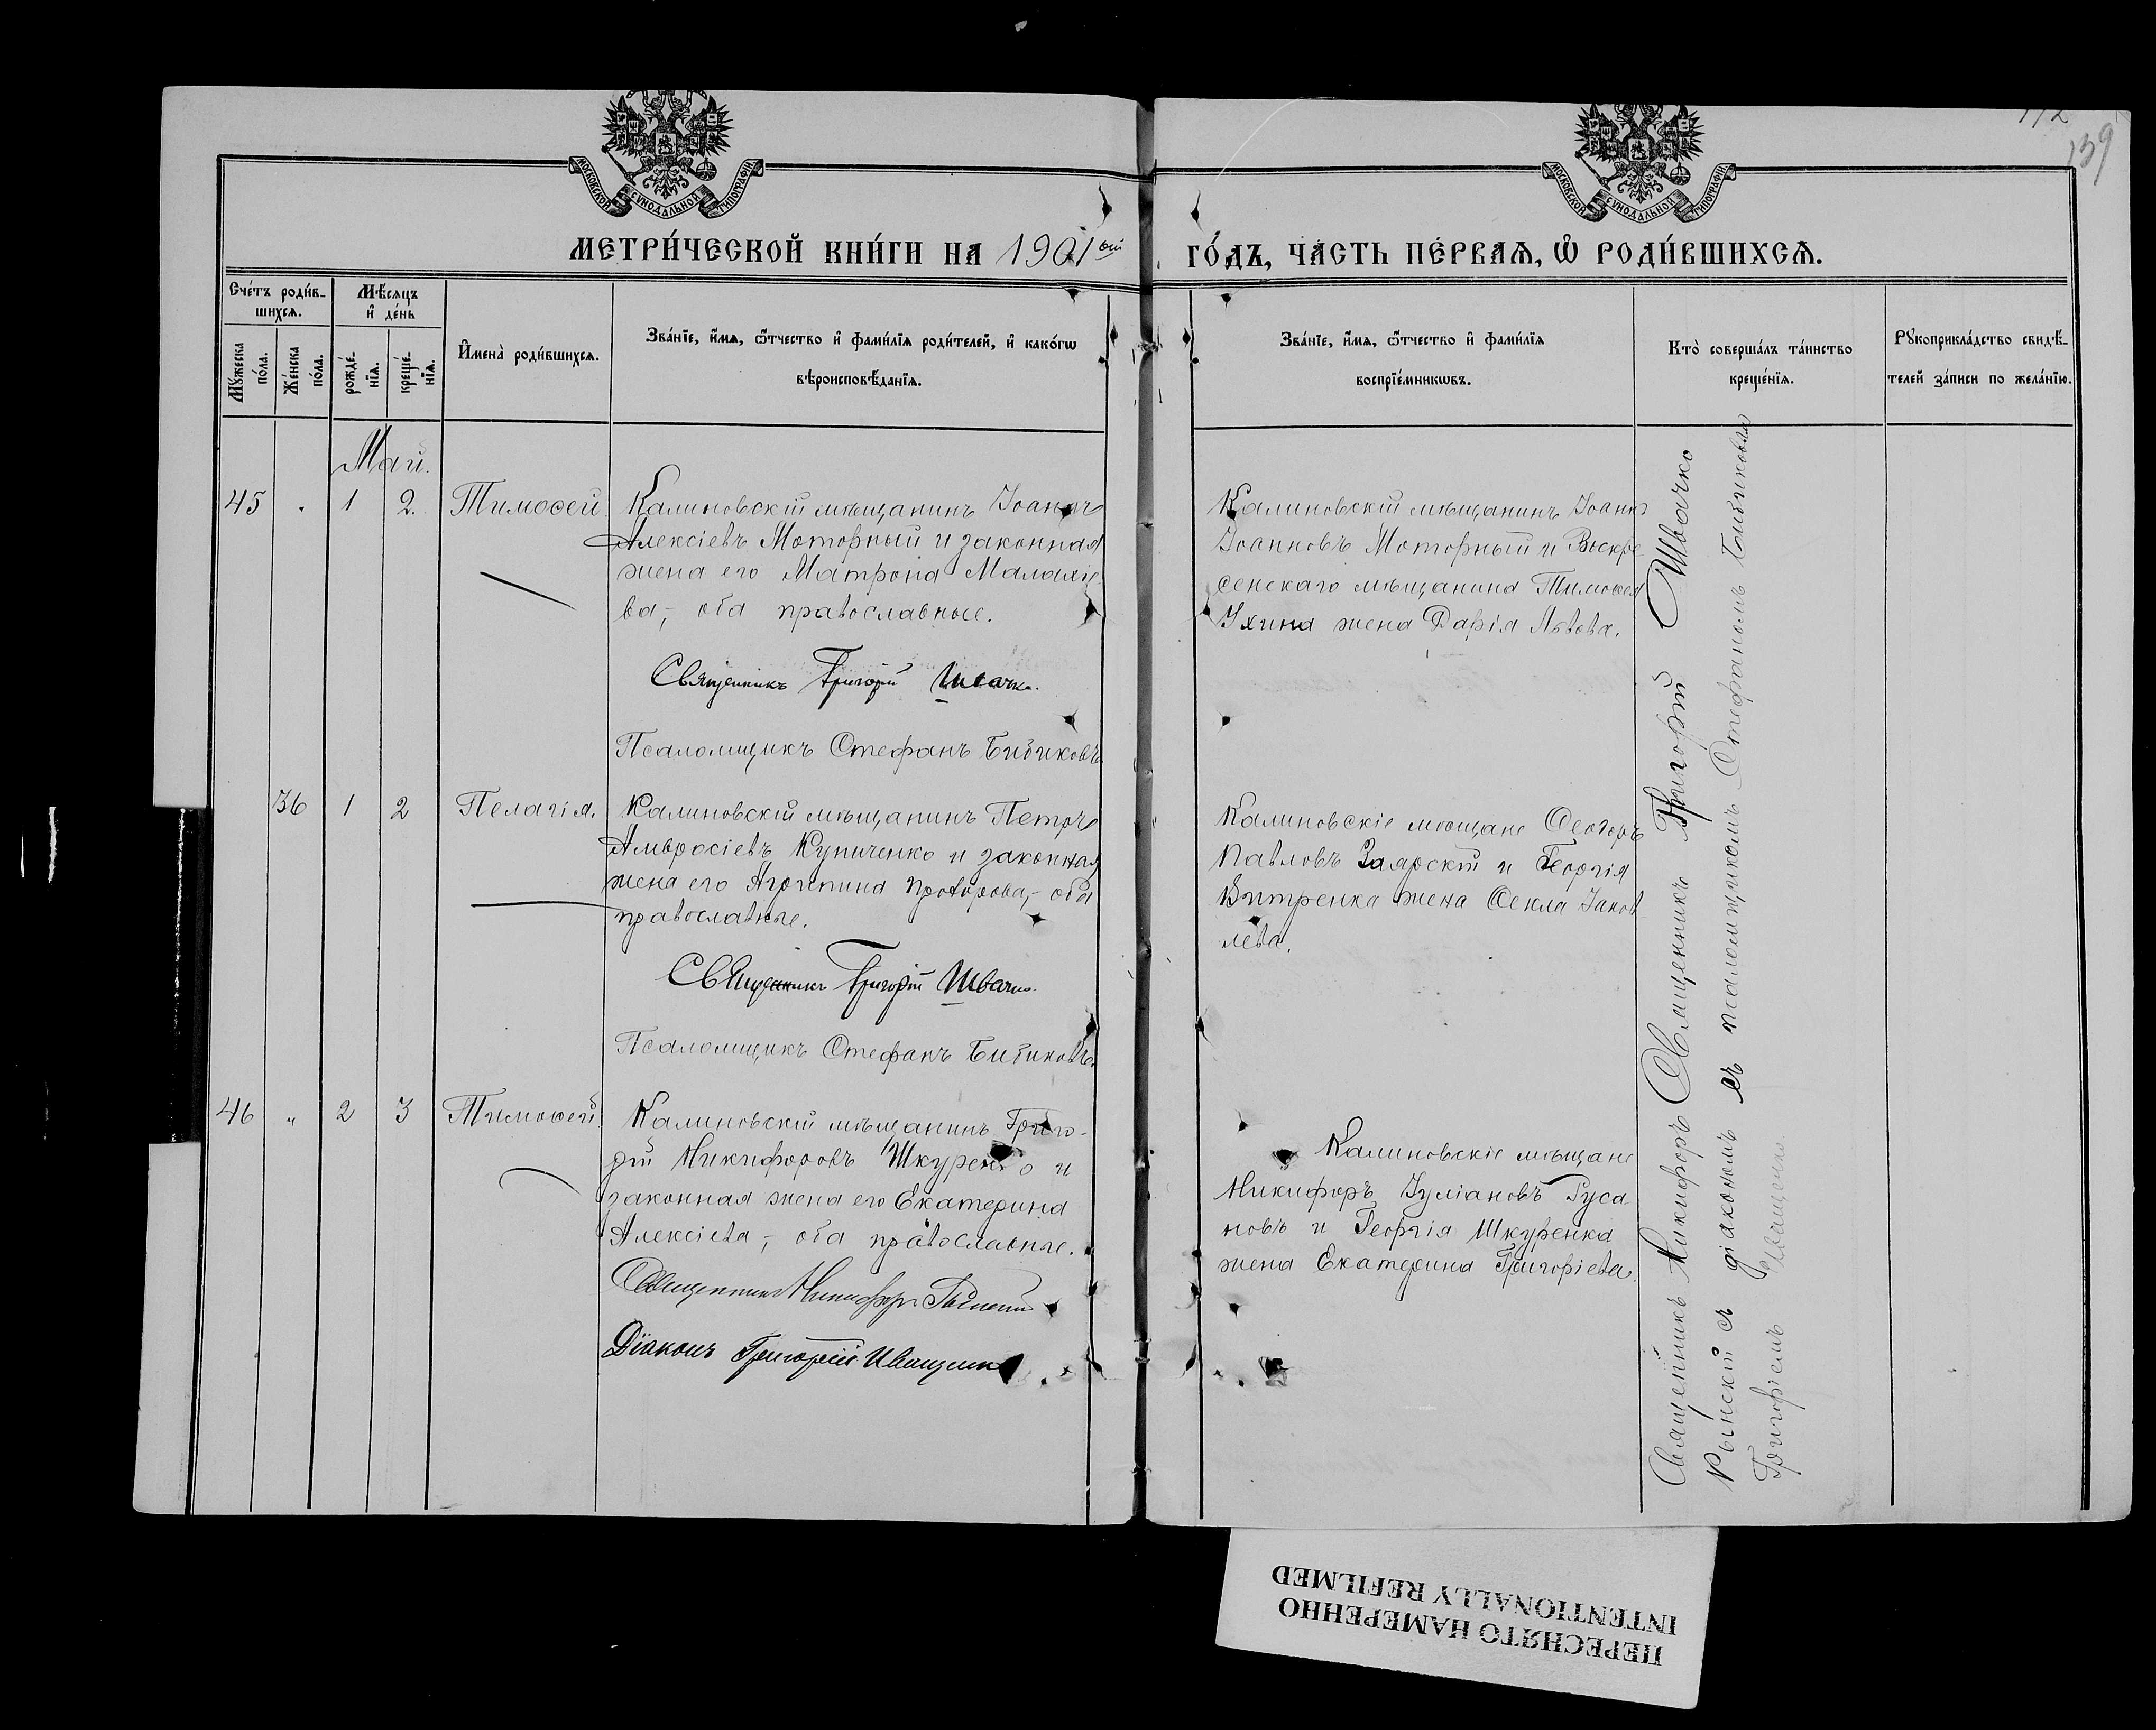 МОСКОВСКОЙ СѴНОДАЛЬНОЙ ТИПОГРАФІИ.
МОСКОВСКОЙ СѴНОДАЛЬНОЙ ТИПОГРАФІИ.
139
МЕТРИ́ЧЕСКОЙ КНИ́ГИ НА 1901 ый ГО́ДЪ, ЧА́СТЬ ПЕ́РВАѦ, Ѡ҆ РОДИ́ВШИХСѦ.
Сче́тъ роди́в-
шихсѧ.
Мꙋ́жеска
по́ла.
Же́нска
по́ла.
Мѣ́сѧцъ
и҆ де́нь
рожде́-
нїѧ.
креще́-
нїѧ.
И҆мена̀ роди́вшихсѧ.
Зва́нїе, и҆́мѧ, ѻ҆́тчество и҆ фами́лїѧ роди́телей, и҆ како́гѡ
вѣроисповѣ́данїѧ.
Зва́нїе, и҆́мѧ, ѻ҆́тчество и҆ фами́лїѧ
воспрїе́мникѡвъ.
Кто̀ соверша́лъ та́инство
креще́нїѧ.
Рꙋкоприкла́дство свидѣ́-
телей за́писи по жела́нїю.
Май.
45 " 1 2. Тимоѳей.
Калиновскій мѣщанинъ Іоаннъ
Алексіевъ Моторный и законная
жена его Матрона Малахіе-
ва, оба православные.
Священникъ Григорій Швачко.
Псаломщикъ Стефанъ Бибиковъ.
Калиновскій мѣщанинъ Іоаннъ
Іоанновъ Моторный и Воскре-
сенскаго мѣщанина Тимоѳея
Ухина жена Дарія Львова.
36 1 2 Пелагія.
Калиновскій мѣщанинъ Петръ
Амвросіевъ Куниченко и законная
жена его Агриппина Прохорова, оба
православные.
Священникъ Григорій Швачко.
Псаломщикъ Стефанъ Бибиковъ.
Калиновскіе мѣщане Ѳеодоръ
Павловъ Заярскій и Георгія
Витренка жена Ѳекла Іаков-
лева.
46 " 2 3 Тимоѳей.
Калиновскій мѣщанинъ Григо-
рій Никифоровъ Шкуренко и
законная жена его Екатерина
Алексіева, оба православные.
Священникъ Никифоръ
Діаконъ Григорій Иващенко
Калиновскіе мѣщане
Никифоръ Іуліановъ Руса-
новъ и Георгія Шкуренка
жена Екатерина Григоріева.
Священникъ Никифоръ Священникъ Григорій Швачко
съ діакономъ съ псаломщикомъ Стефаномъ Бибиковымъ
Григоріемъ Иващенко.
ПЕРЕСНЯТО НАМЕРЕННО
INTENTIONALLY REFILMED